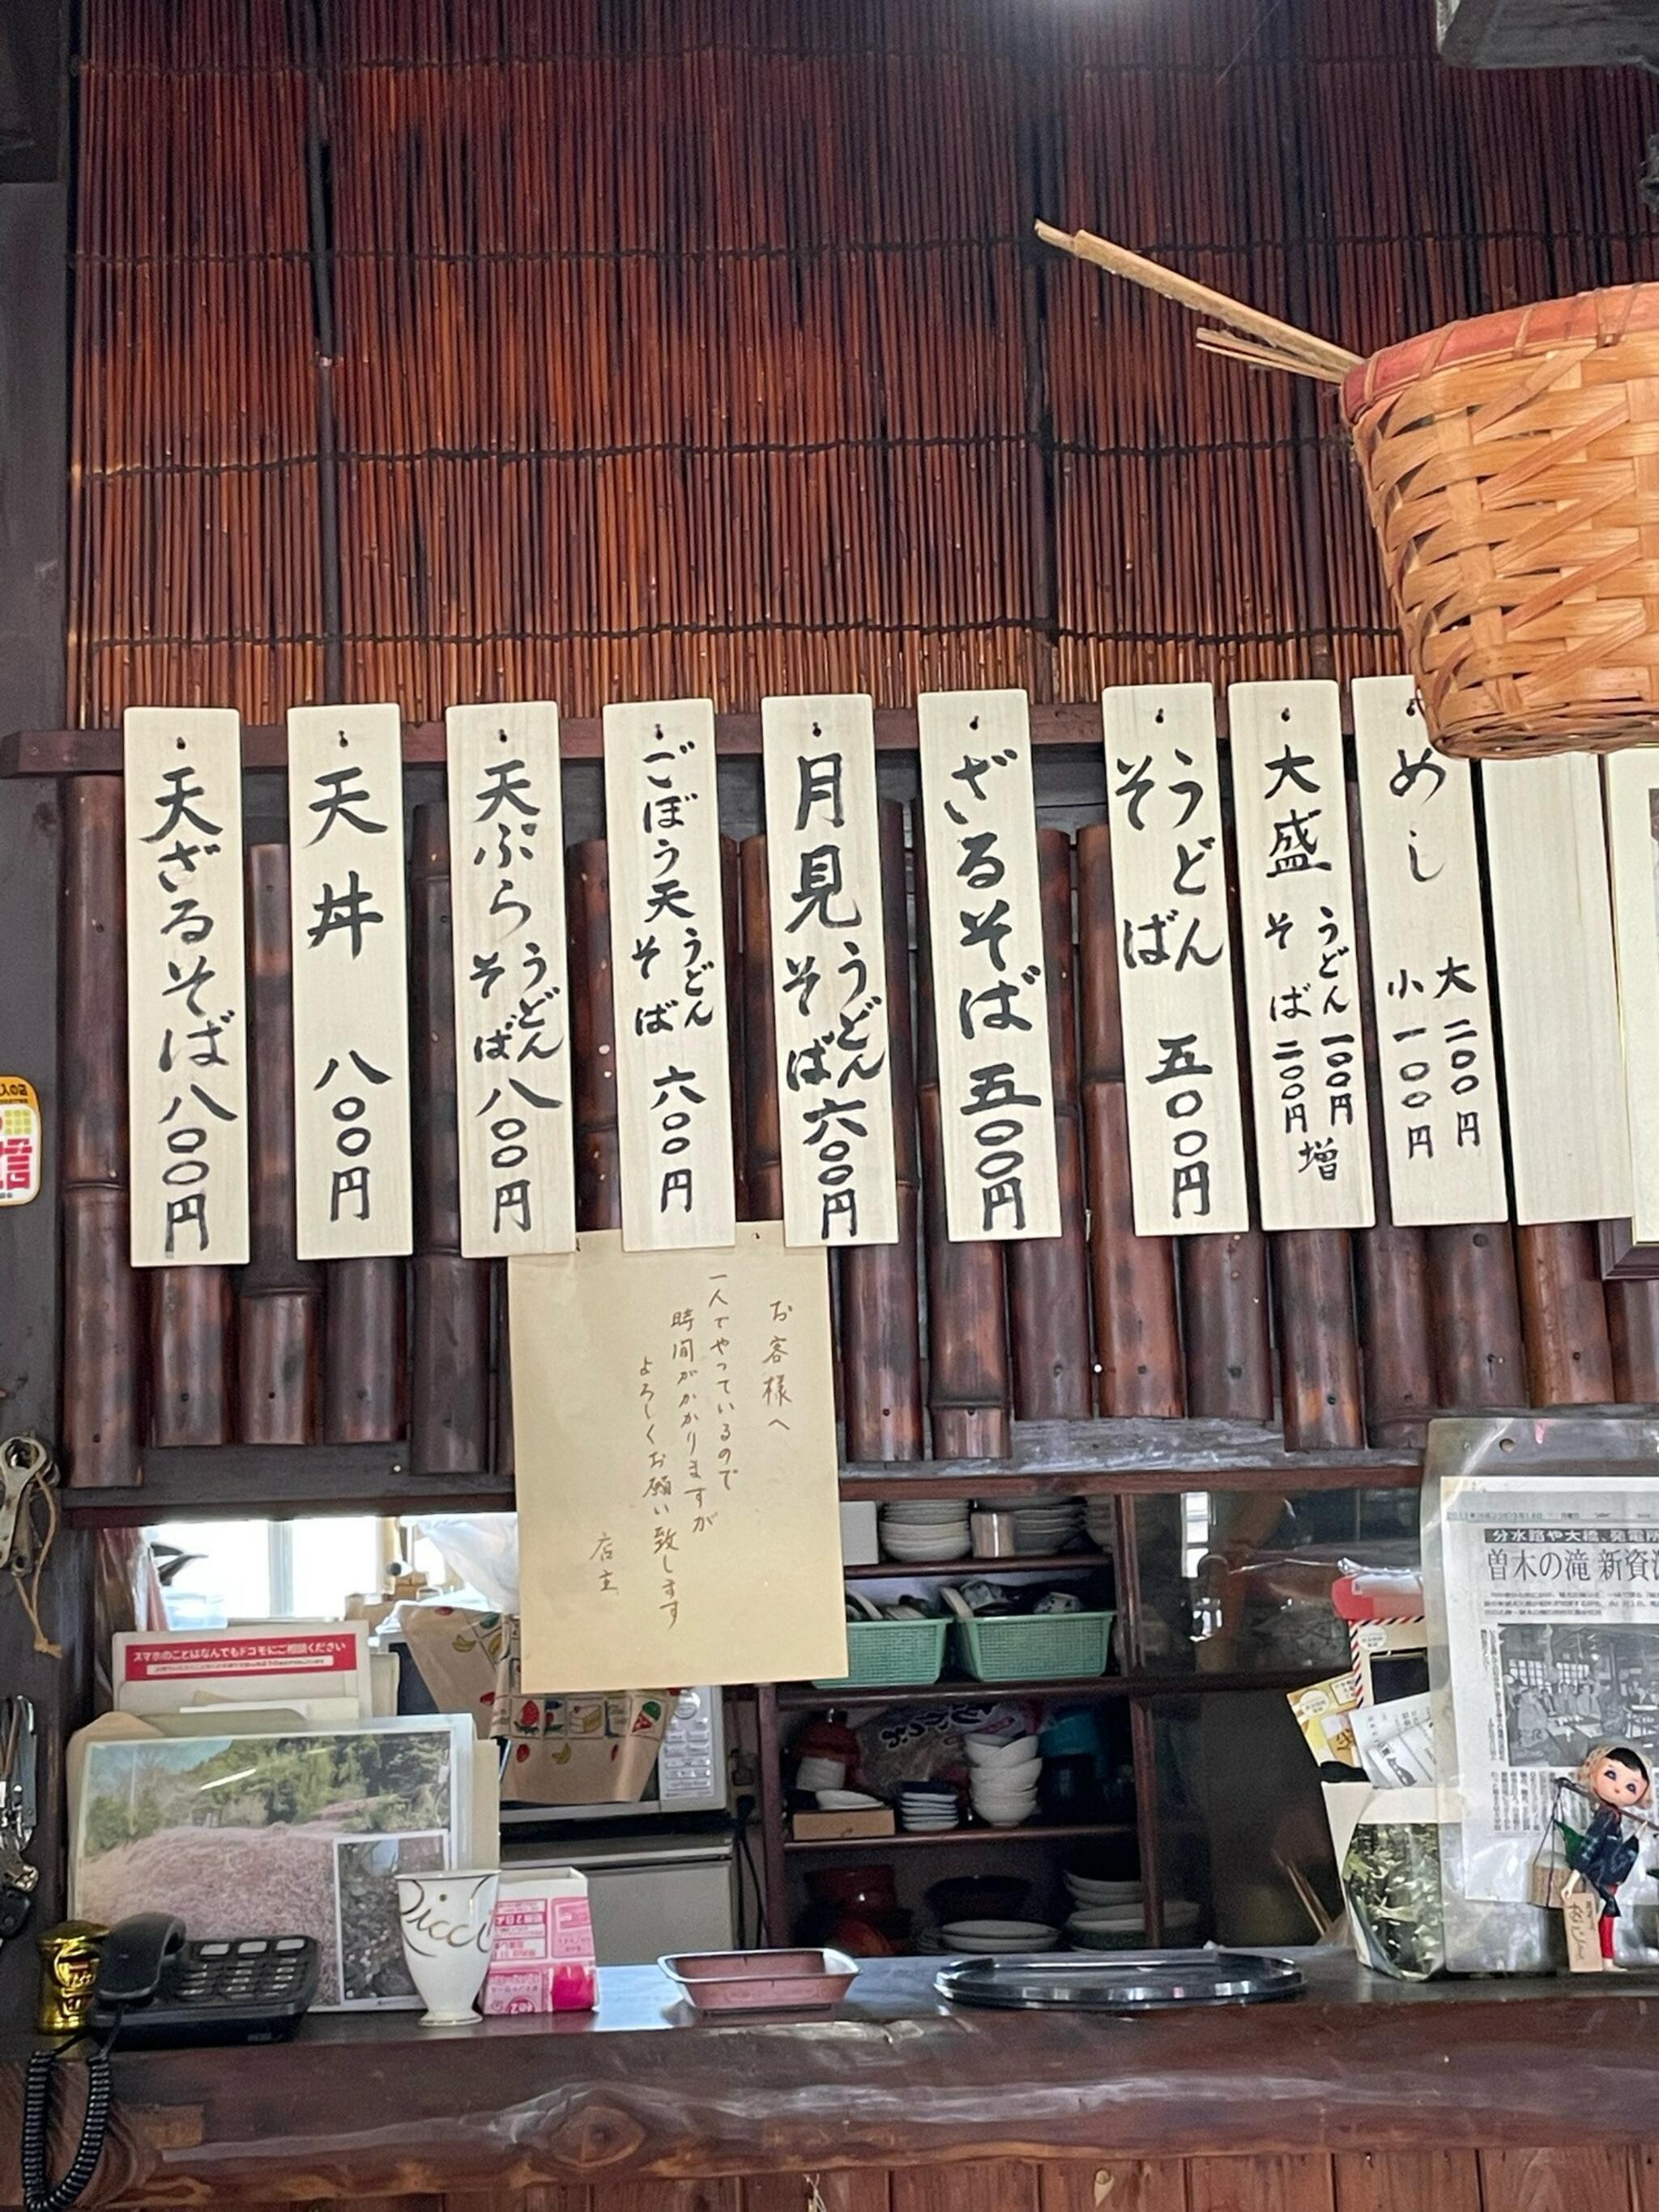 めし 大 二〇〇円
小 一〇〇円
大盛 うどん 一〇〇円
そば 二〇〇円 増
うどん
そば 五〇〇円
ざるそば 五〇〇円
月見 うどん
そば 六〇〇円
ごぼう天 うどん
そば 六〇〇円
天ぷら うどん
そば 八〇〇円
天丼 八〇〇円
天ざるそば 八〇〇円
お客様へ
一人でやっているので
時間がかかりますが
よろしくお願い致します
店主
スマホのことはなんでもドコモにご相談ください
分水路や大橋、発電所
曽木の滝 新資源
Ricci